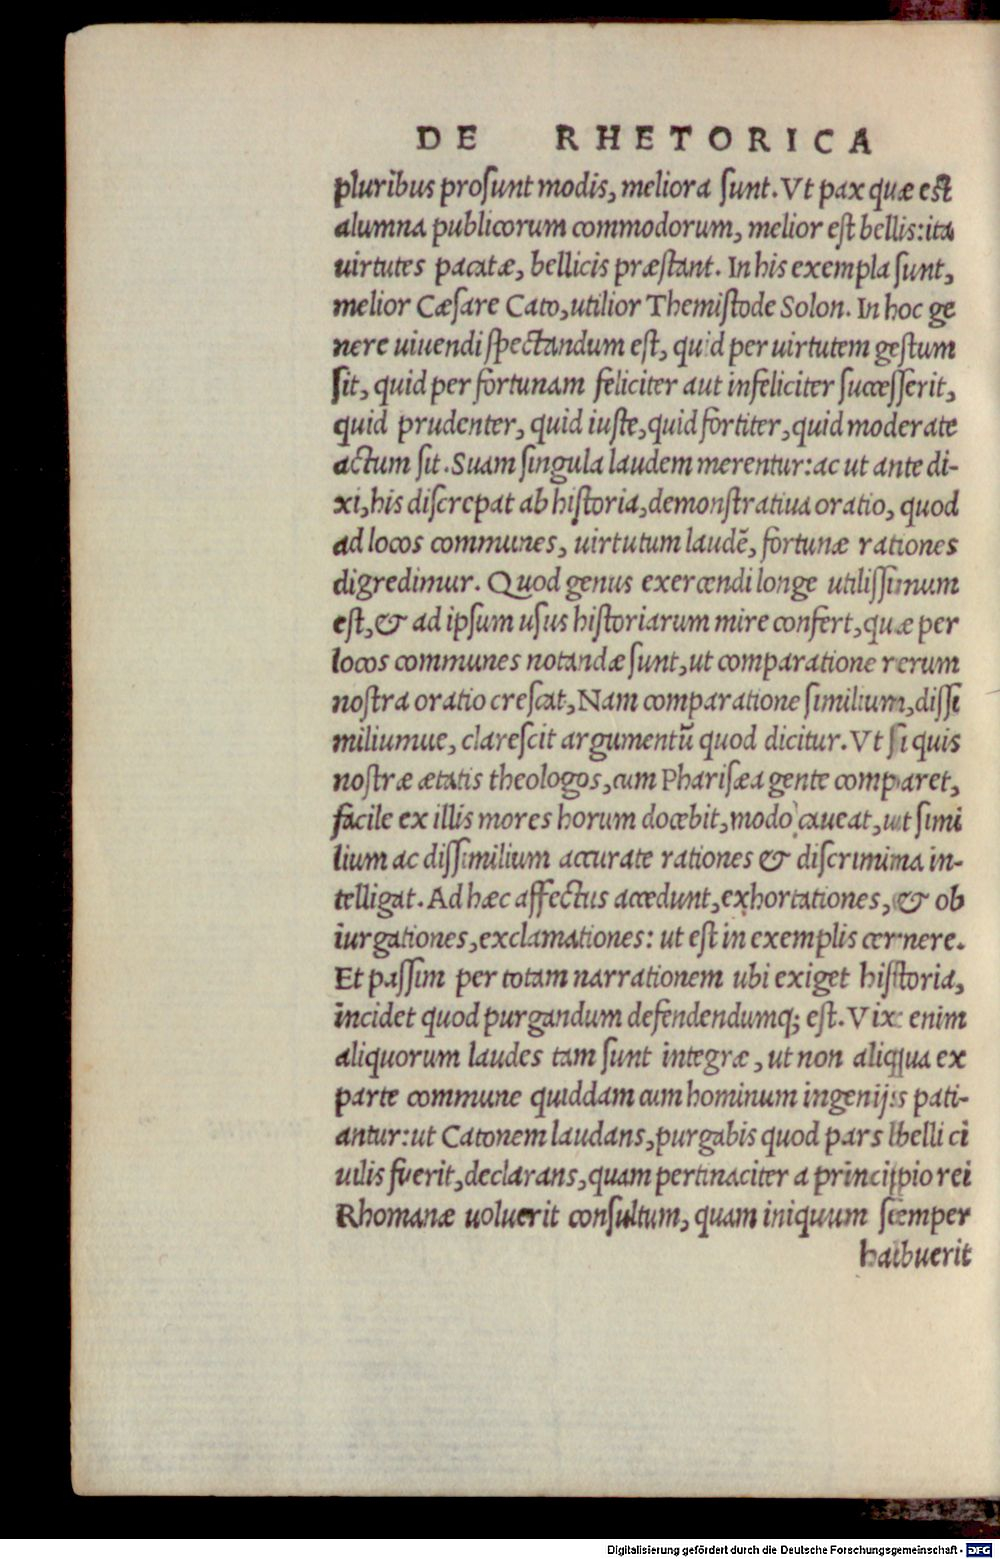 DE RHETORICA
pluribus prosunt modis, meliora sunt. Vt pax quæ est
alumna publicorum commodorum, melior est bellis: ita
uirtutes pacatæ, bellicis præstant. In his exempla sunt,
melior Cæsare Cato, utilior Themistocle Solon. In hoc ge
nere uiuendi spectandum est, quid per uirtutem gestum
sit, quid per fortunam feliciter aut infeliciter successerit,
quid prudenter, quid iuste, quid fortiter, quid moderate
actum sit. Suam singula laudem merentur: ac ut ante di-
xi, his discrepat ab historia, demonstratiua oratio, quod
ad locos communes, uirtutum laudē, fortunæ rationes
digredimur. Quod genus exercendi longe utilissimum
est, & ad ipsum usus historiarum mire confert, quæ per
locos communes notandæ sunt, ut comparatione rerum
nostra oratio crescat, Nam comparatione similium, dissi
miliumue, clarescit argumentū quod dicitur. Vt si quis
nostræ ætatis theologos, cum Pharisæa gente comparet,
facile ex illis mores horum docebit, modo caueat, ut simi
lium ac dissimilium accurate rationes & discrimina in-
telligat. Ad hæc affectus accedunt, exhortationes, & ob
iurgationes, exclamationes: ut est in exemplis cernere.
Et passim per totam narrationem ubi exiget historia,
incidet quod purgandum defendendumq; est. Vix enim
aliquorum laudes tam sunt integræ, ut non aliqua ex
parte commune quiddam cum hominum ingenijs pati-
antur: ut Catonem laudans, purgabis quod pars belli ci
uilis fuerit, declarans, quam pertinaciter a principio rei
Rhomanæ uoluerit consultum, quam iniquum semper
habuerit
Digitalisierung gefördert durch die Deutsche Forschungsgemeinschaft - DFG